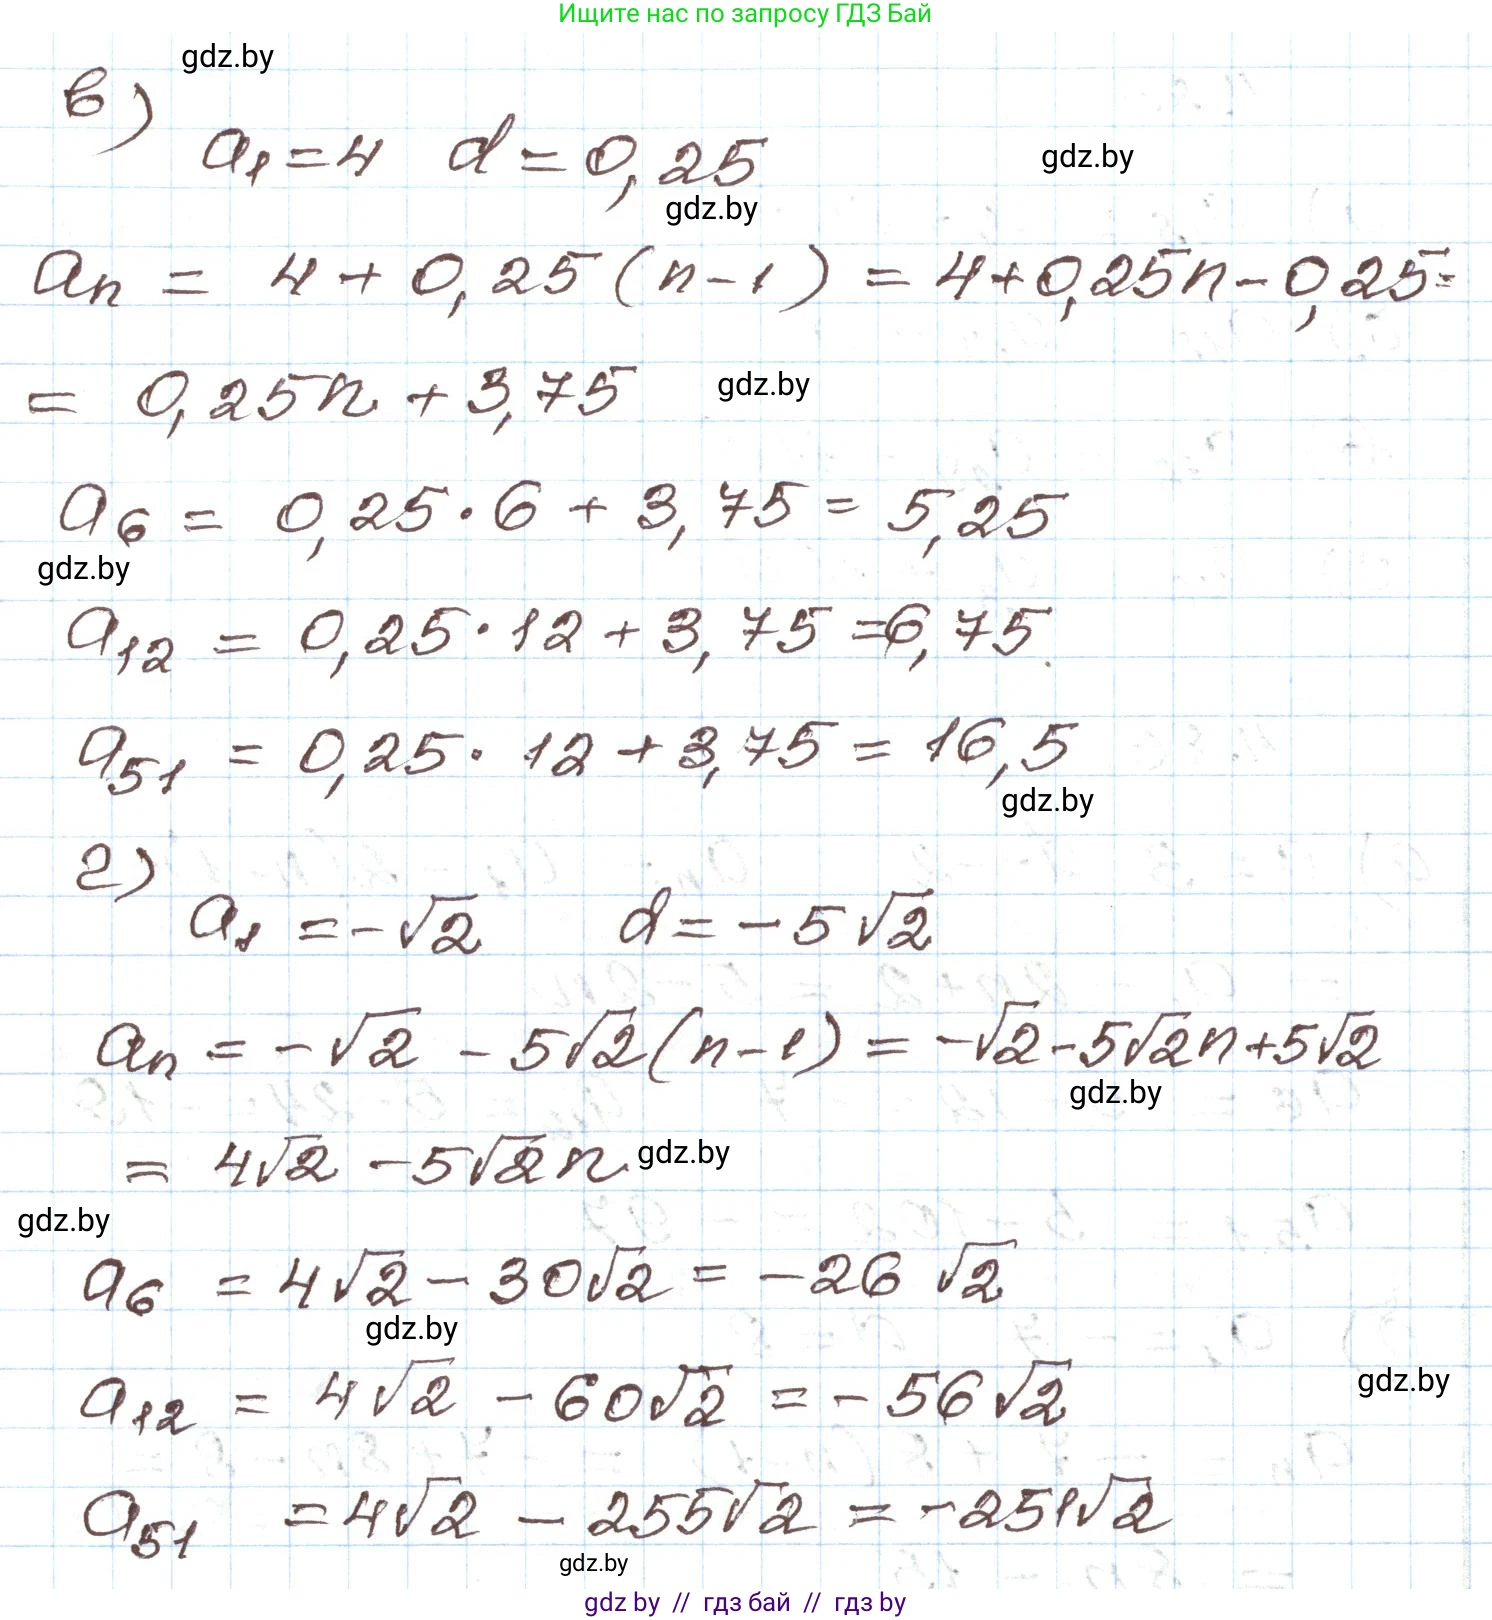 Ищите нас по запросу ГДЗ Бай
gdz.by
в)
a₁ = 4 d = 0,25
gdz.by
gdz.by
aₙ = 4 + 0,25 (n - 1) = 4 + 0,25n - 0,25 =
= 0,25n + 3,75
gdz.by
a₆ = 0,25 · 6 + 3,75 = 5,25
gdz.by
a₁₂ = 0,25 · 12 + 3,75 = 6,75
a₅₁ = 0,25 · 12 + 3,75 = 16,5
gdz.by
г)
a₁ = -√2 d = -5√2
aₙ = -√2 - 5√2 (n - 1) = -√2 - 5√2n + 5√2
gdz.by
= 4√2 - 5√2n
gdz.by
gdz.by
a₆ = 4√2 - 30√2 = -26√2
gdz.by
a₁₂ = 4√2 - 60√2 = -56√2
gdz.by
a₅₁ = 4√2 - 255√2 = -251√2
gdz.by
gdz by // гдз бай // гдз by